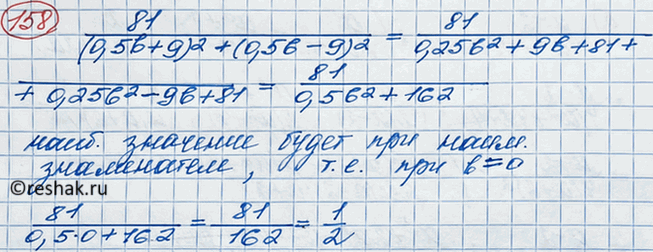 158.
81 / (0,5b+9)² + (0,5b−9)² = 81 / 0,25b² + 9b + 81 +
+ 0,25b² − 9b + 81 = 81 / 0,5b² + 162
наиб. значение будет при наим.
знаменателе, т.е. при b=0
©reshak.ru
81 / 0,5·0+162 = 81 / 162 = 1 / 2